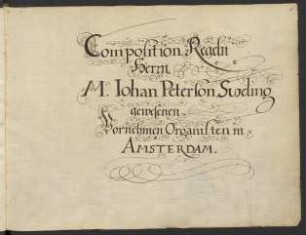 Composition Regeln
Herrn
M. Johan Peterson Sweling
gewesenen
Vornehmen Organisten in
AMSTERDAM.